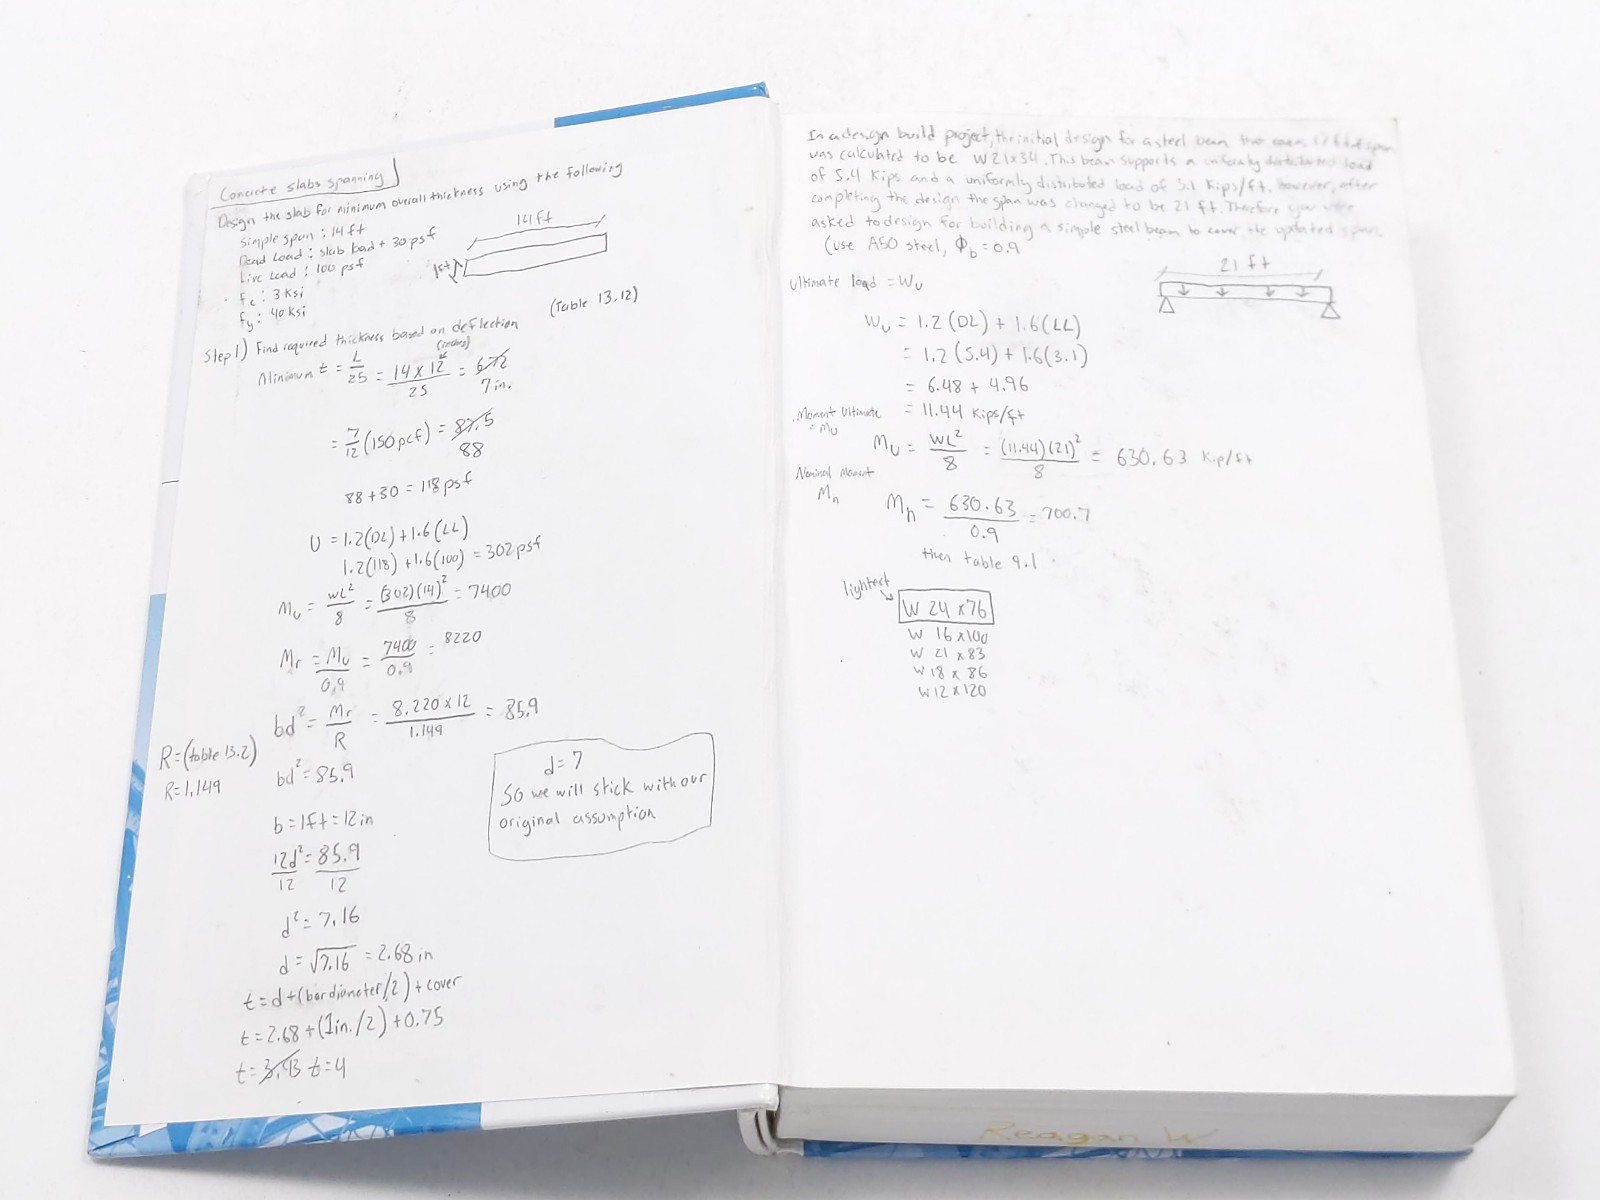 Concrete slabs spanning
Design the slab for minimum overall thickness using the following
Simple span : 14 ft
Dead Load : slab load + 30 psf
Live Load : 100 psf
f c : 3 ksi
fy : 40 ksi
14 ft
1ft
Step 1) Find required thickness based on deflection (Table 13.12)
(inches)
Minimum t = L/25 = 14 x 12/25 = 6.72
7 in.
= 7/12 (150 pcf) = 87.5
88
88 + 30 = 118 psf
U = 1.2(DL) + 1.6(LL)
1.2(118) + 1.6(100) = 302 psf
Mu = wL²/8 = (302)(14)²/8 = 7400
Mr = Mu/0.9 = 7400/0.9 = 8220
bd² = Mr/R = 8.220 x 12/1.149 = 85.9
R=(table 13.2)
R=1.149
bd² = 85.9
b = 1ft = 12in
12d²/12 = 85.9/12
d² = 7.16
d = √7.16 = 2.68 in
t = d + (bar diameter/2) + cover
t = 2.68 + (1in./2) + 0.75
t = 3.93 t = 4
d = 7
So we will stick with our
original assumption
In a design build project, the initial design for a steel beam that 17 ft span
was calculated to be W21x34. This beam supports a uniformly distributed load
of 5.4 Kips and a uniformly distributed load of 3.1 Kips/ft. However, after
completing the design the span was changed to be 21 ft. Therefore you were
asked to design for building a simple steel beam to cover the updated span.
(use A50 steel, Φb = 0.9
21 ft
Ultimate load = Wu
Wu = 1.2 (DL) + 1.6(LL)
= 1.2 (5.4) + 1.6(3.1)
= 6.48 + 4.96
= 11.44 Kips/ft
Moment Ultimate
= Mu
Mu = WL²/8 = (11.44)(21)²/8 = 630.63 Kip/ft
Nominal Moment
Mn
Mn = 630.63/0.9 = 700.7
then table 9.1
lightest
W 24 x 76
W 16 x 100
W 21 x 83
W 18 x 86
W 12 x 120
Reagan W